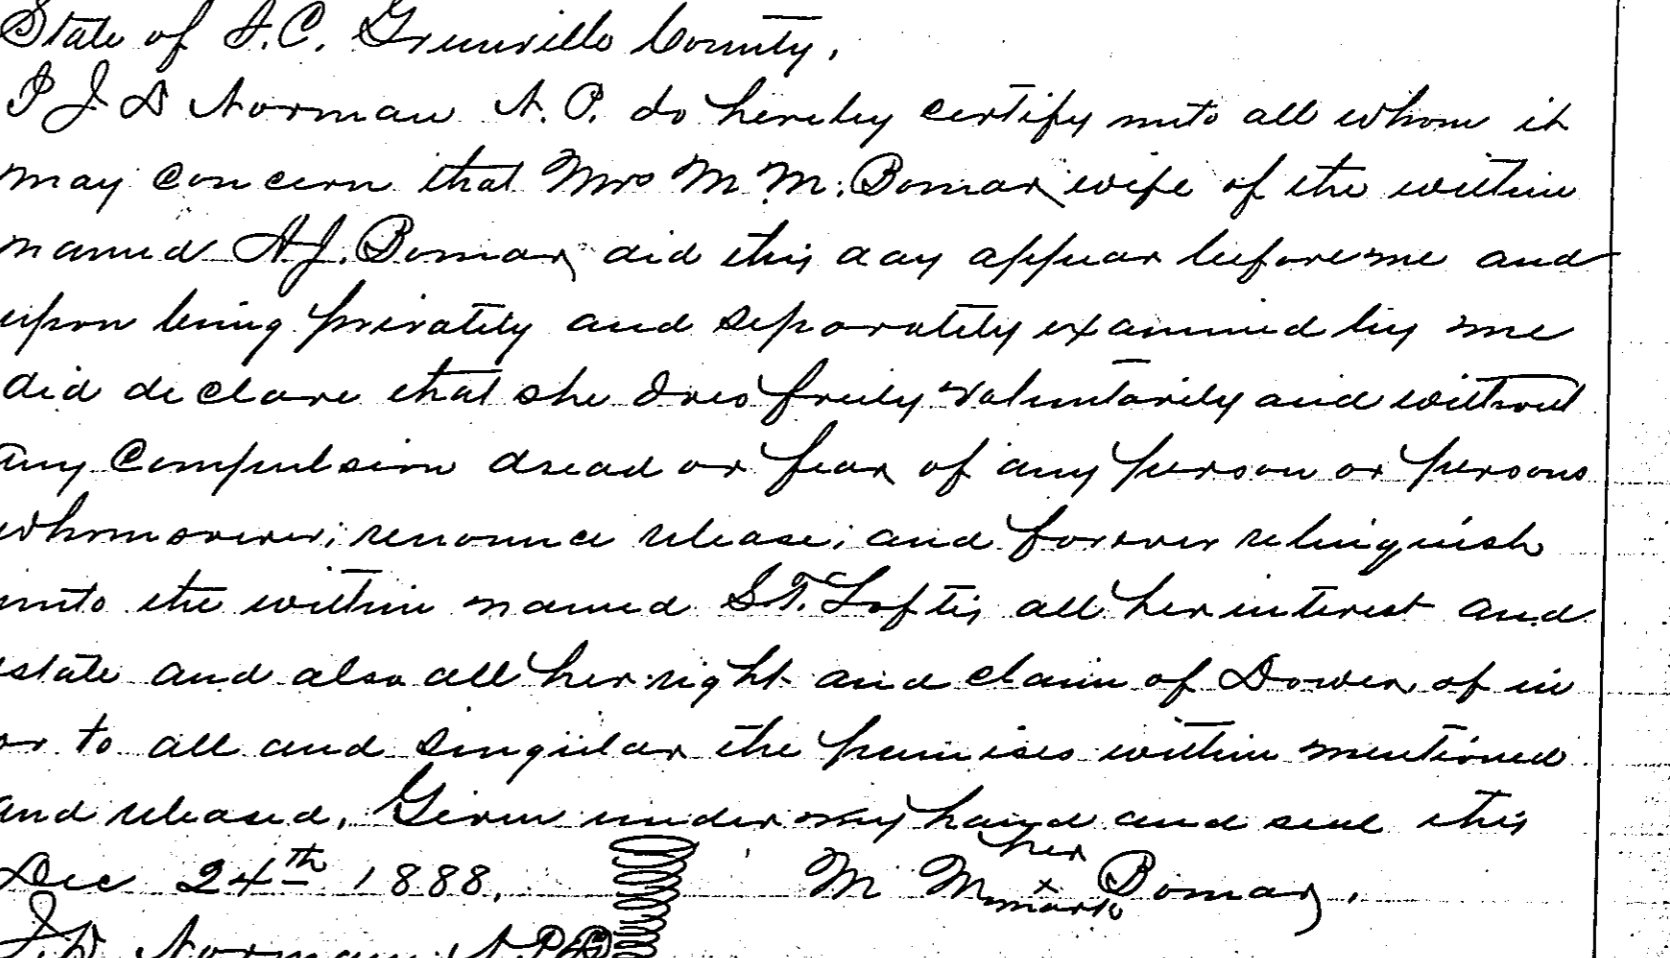 State of S.C. Greenville County,
I J D Norman N.P. do hereby certify unto all whom it
may concern that Mrs M M. Bomar wife of the within
named A.J. Bomar, did this day appear before me and
upon being privately and separately examined by me
did declare that she does freely voluntarily and without
any Compulsion dread or fear of any person or persons
whomsoever; renounce release; and forever relinquish
unto the within named S.T. Loftis all her interest and
estate and also all her right and claim of Dower, of in
or to all and singular the premises within mentioned
and released. Given under my hand and seal this
Dec 24th 1888.
her
M M x Bomar.
mark
J.D. Norman N.P.